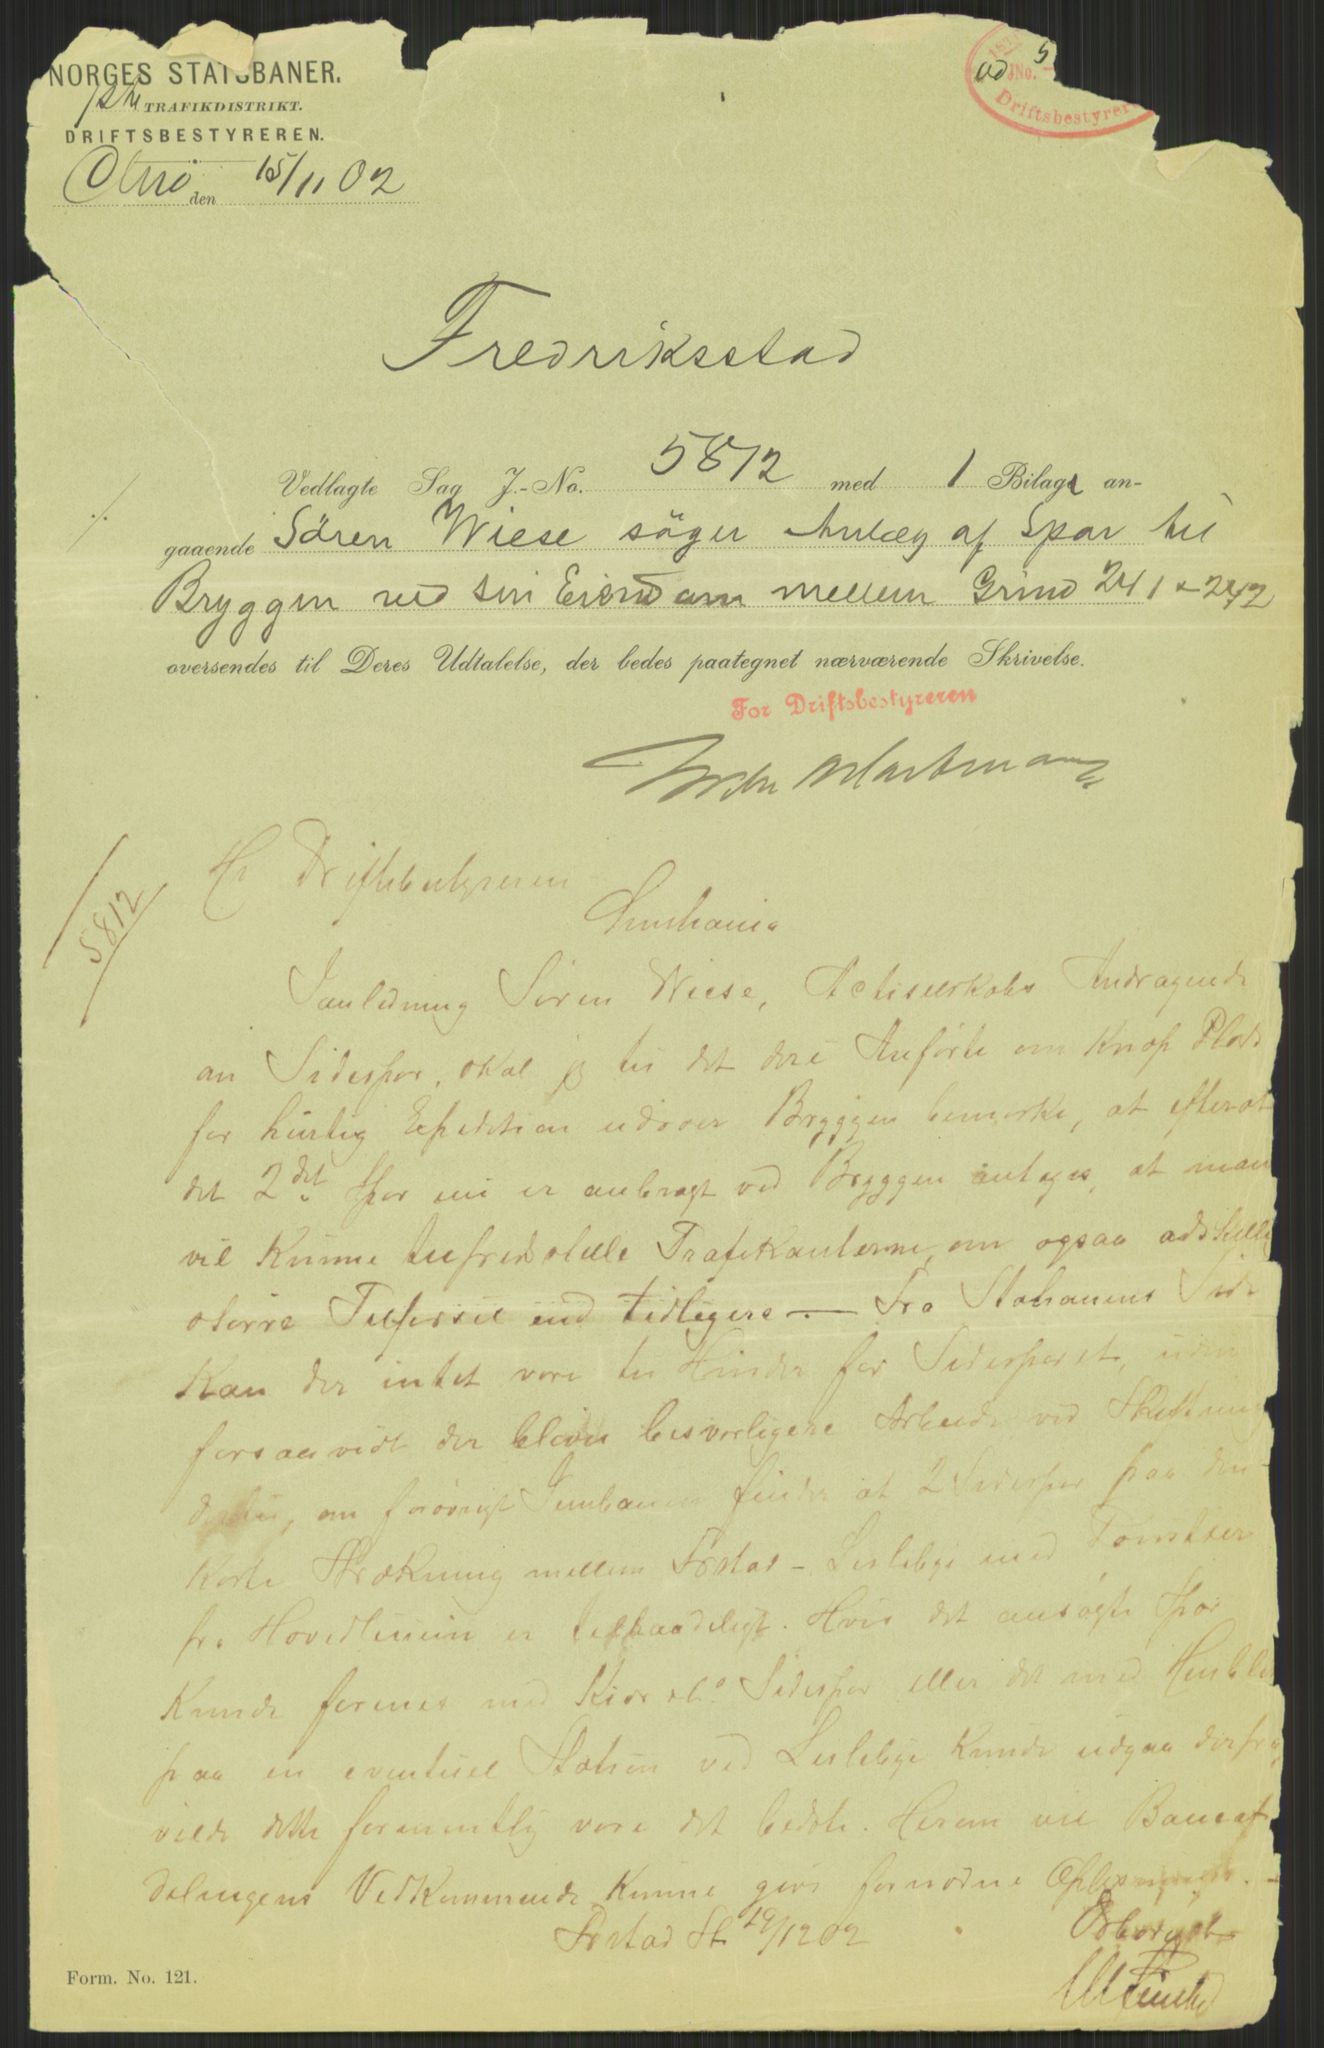 NORGES STATSBANER.
1ste TRAFIKDISTRIKT.
DRIFTSBESTYREREN.
den 15/11 02
ad 5
JNo.
Driftsbestyrer
Fredriksstad
Vedlagte Sag J.-No. 5812 med 1 Bilag an-
gaaende Sören Wiese söger Anlæg af Spor til
Bryggen ved sin Eiendom mellem Grind 241 & 242
oversendes til Deres Udtalelse, der bedes paategnet nærværende Skrivelse.
For Driftsbestyreren
5812
Hr Driftsbestyreren
I anledning Sören Wiese, Actieselskabs Andragende
om Sidespor, skal jeg til det deri Anførte om Knap Plads
for hurtig Expedition udover Bryggen bemærke, at efterat
det 2det Spor nu er anbragt ved Bryggen antages, at man
vil kunne tilfredsstille Trafikanterne, om ogsaa adskillig
større Tilførsel end tidligere. — Fra Stationens Side
kan der intet være til Hinder for Sidesporet, uden
forsaavidt der bliver besværligere Arbeide ved Skiftning
dertil, om forøvrigt Jernbanen finder at 2 Sidespor paa den
korte Strækning mellem Frstad - Lisleby med
fra Hovedlinien er tilraadeligt. Hvis det ansøgte Spor
kunde forenes med Kiær &Co Sidespor eller det med Henblik
paa en eventuel Station ved Lisleby kunde udgaa derfra
vilde dette formentlig være det bedste. Herom vil Baneaf
delingens Vedkommende kunne give fornødne Oplysninger. -
Frstad St /12 02
Ærbødigst
Form. No. 121.